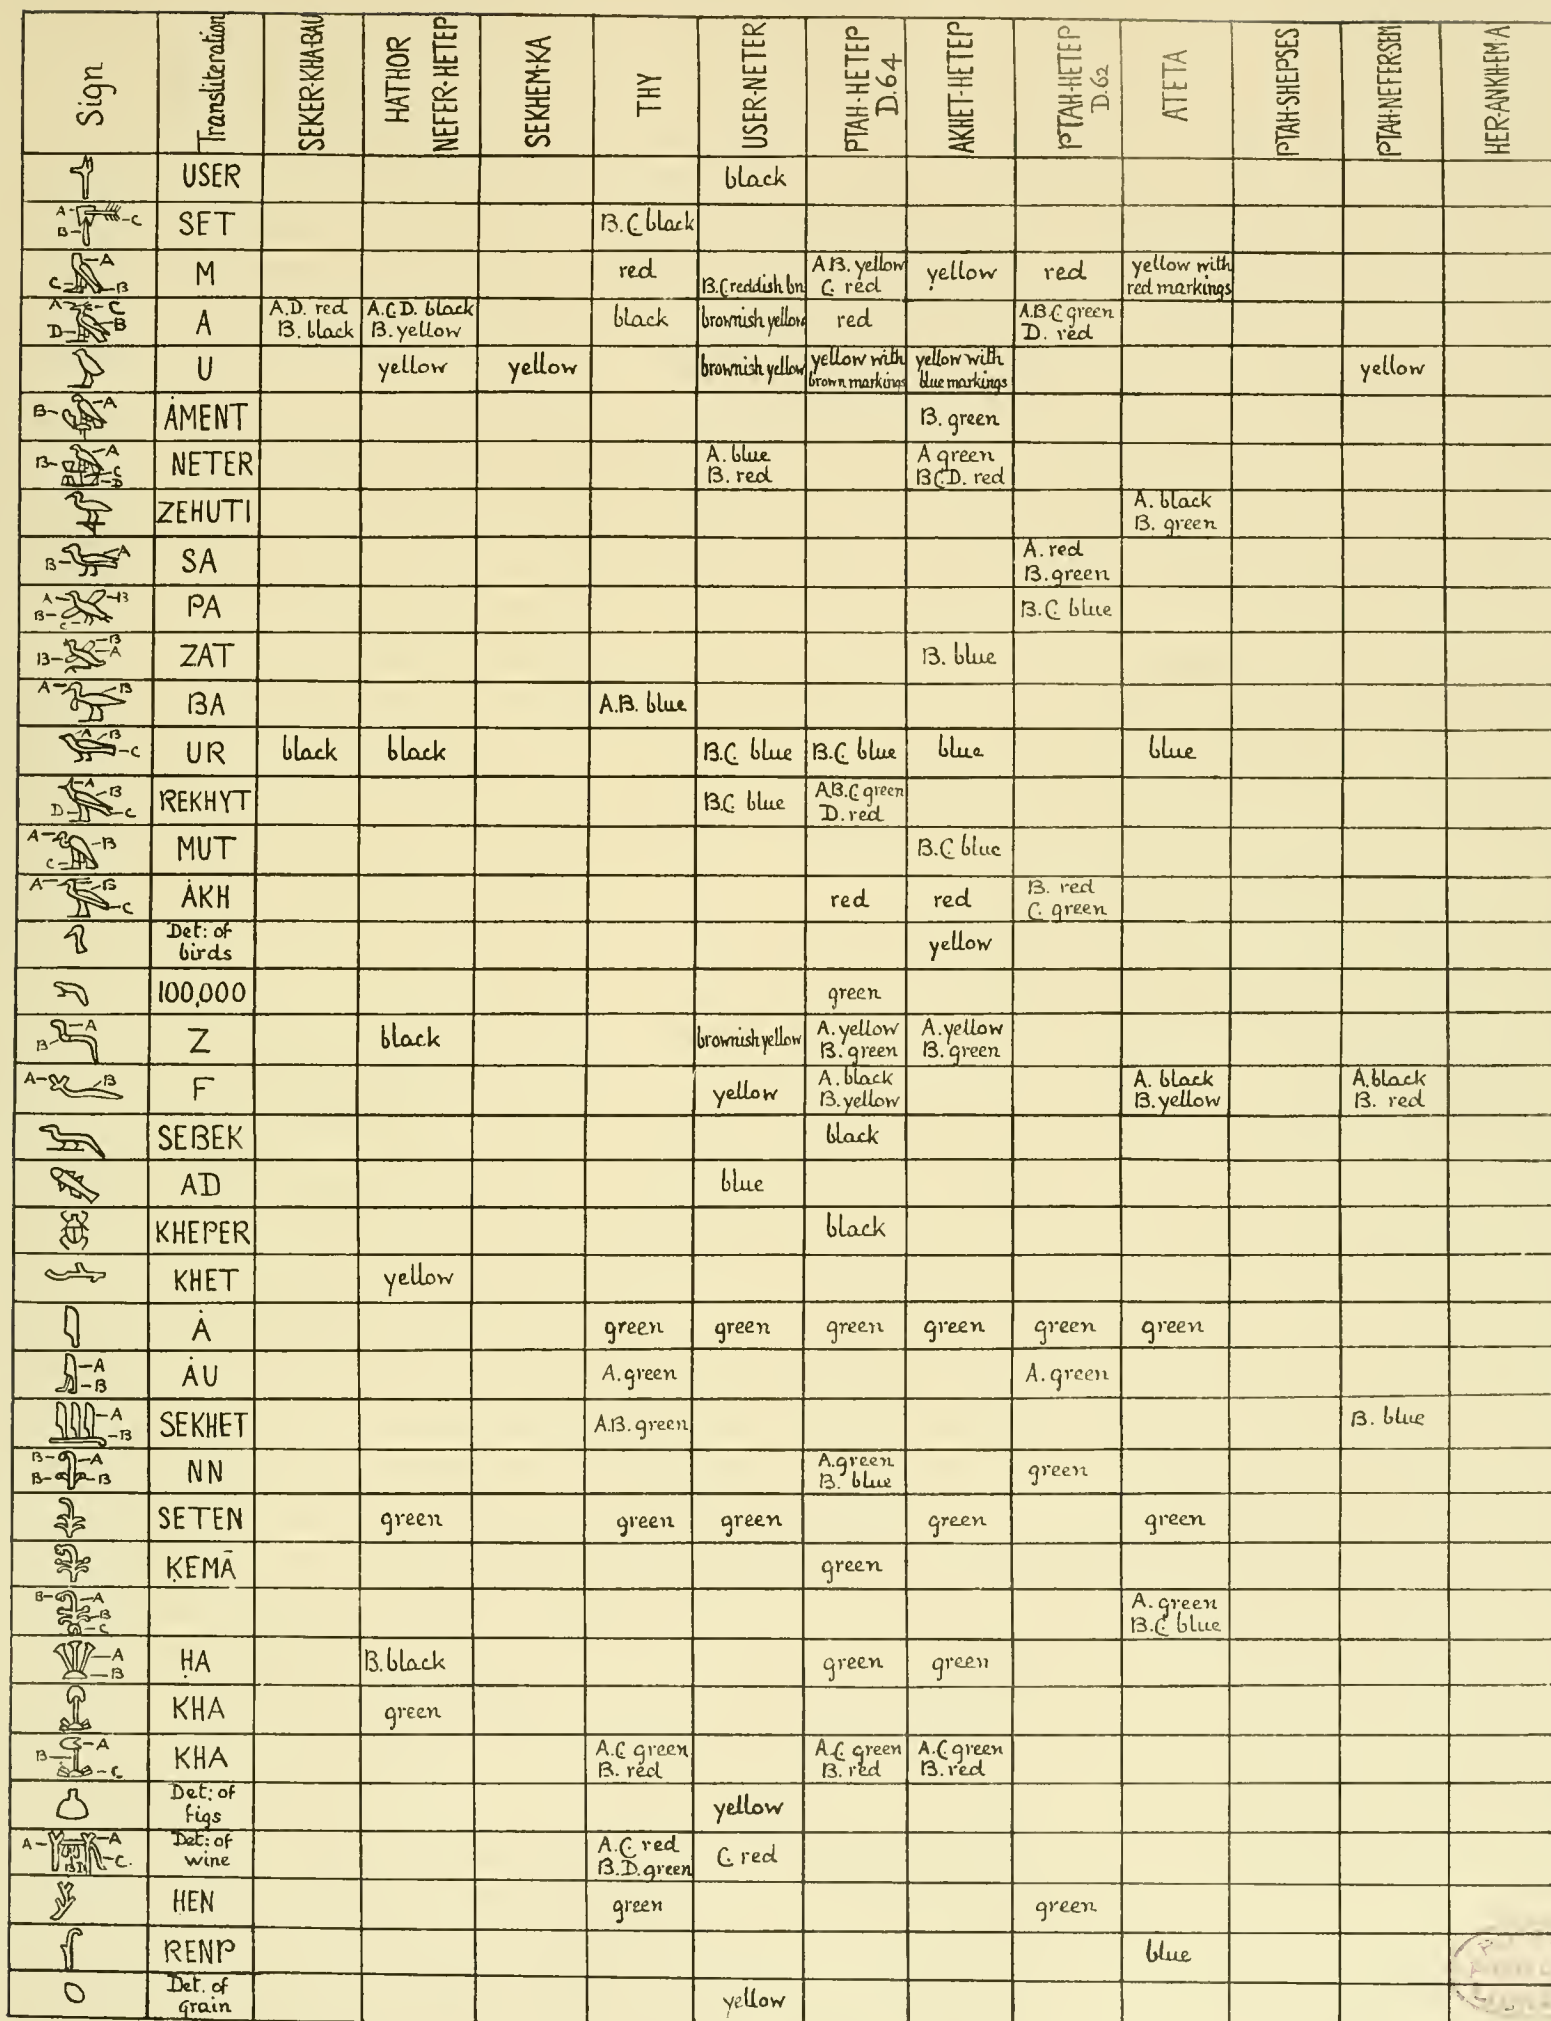 Sign Transliteration SEKER-KHA-BAU HATHOR NEFER-HETEP SEKHEM-KA THY USER-NETER PTAH-HETEP D.64 AKHET-HETEP PTAH-HETEP D.62 ATETA PTAH-SHEPSES PTAH-NEFER-SEM HER-ANKH-EM-A
USER black
A C B SET B.C. black
A C B M red B.C. reddish bn A.B. yellow C. red yellow red yellow with red markings
A C D B A A.D. red B. black A.C.D. black B. yellow black brownish yellow red A.B.C. green D. red
U yellow yellow brownish yellow yellow with brown markings yellow with blue markings yellow
B A ȦMENT B. green
B A C D NETER A. blue B. red A green B.C.D. red
ZEHUTI A. black B. green
B A SA A. red B. green
A B B C PA B.C. blue
B B A ZAT B. blue
A B BA A.B. blue
A B C UR black black B.C. blue B.C. blue blue blue
A B D C REKHYT B.C. blue A.B.C. green D. red
A B C MUT B.C. blue
A B C ȦKH red red B. red C. green
Det: of birds yellow
100,000 green
A B Z black brownish yellow A. yellow B. green A. yellow B. green
A B F yellow A. black B. yellow A. black B. yellow A. black B. red
SEBEK black
AD blue
KHEPER black
KHET yellow
Ȧ green green green green green green
A B ȦU A. green A. green
A B SEKHET A.B. green B. blue
B A B B NN A. green B. blue green
SETEN green green green green green
ḲEMĀ green
B A B C A. green B.C. blue
A B ḤA B. black green green
KHA green
A B C KHA A.C. green B. red A.C. green B. red A.C. green B. red
Det: of figs yellow
A A B D C. Det: of wine A.C. red B.D. green C. red
HEN green green
RENP blue
Det. of grain yellow